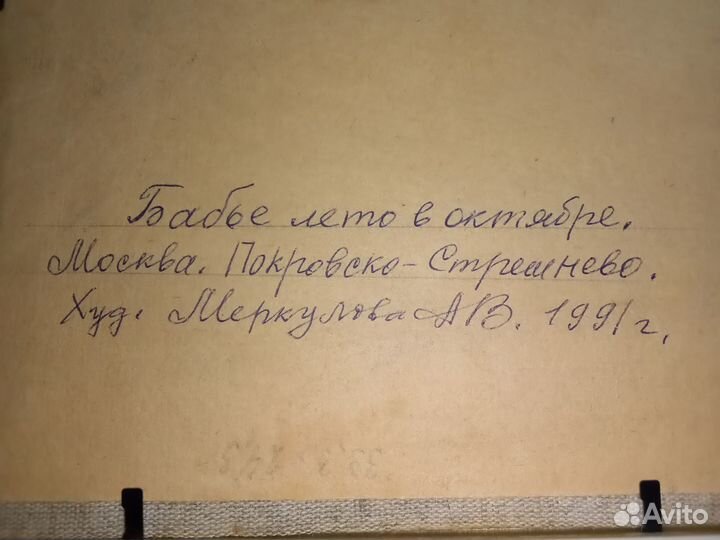 Бабье лето в октябре.
Москва. Покровско-Стрешнево.
Худ. Меркулова АВ. 1991 г.
Avito